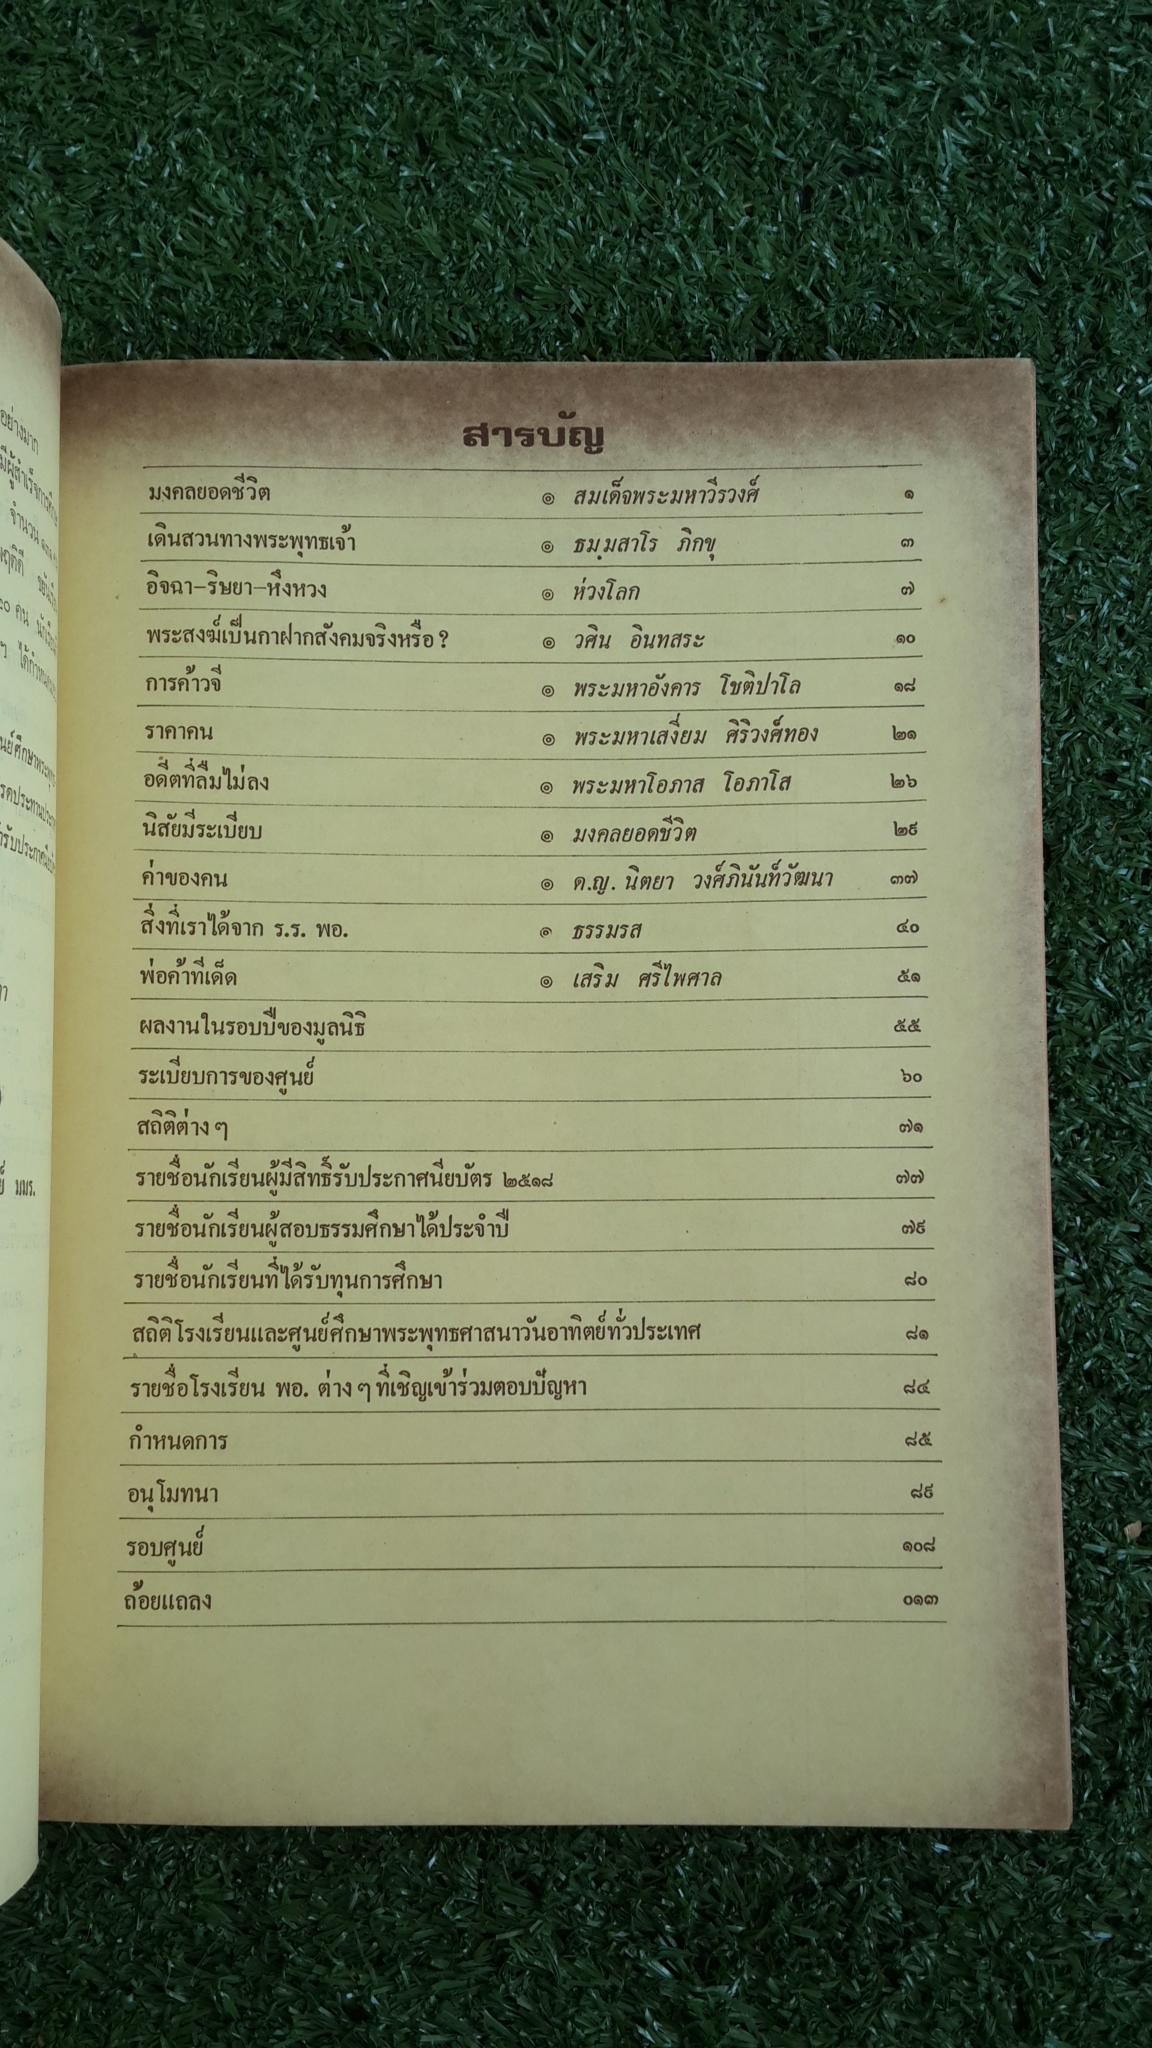 อย่างมาก
มีผู้สำเร็จการศึกษ
จำนวน
พฤติดี ขยัน
๒๐ คน นักเรียน
ๆ ได้กำหนด
นย์ศึกษาพระพุทธ
รดประทานประกา
รับประกาศนียบัต
ย์ มมร.
สารบัญ
มงคลยอดชีวิต ๏ สมเด็จพระมหาวีรวงศ์ ๑
เดินสวนทางพระพุทธเจ้า ๏ ธมฺมสาโร ภิกขุ ๓
อิจฉา–ริษยา–หึงหวง ๏ ห่วงโลก ๗
พระสงฆ์เป็นกาฝากสังคมจริงหรือ ? ๏ วศิน อินทสระ ๑๐
การค้าวจี ๏ พระมหาอังคาร โชติปาโล ๑๘
ราคาคน ๏ พระมหาเสงี่ยม ศิริวงศ์ทอง ๒๑
อดีตที่ลืมไม่ลง ๏ พระมหาโอภาส โอภาโส ๒๖
นิสัยมีระเบียบ ๏ มงคลยอดชีวิต ๒๙
ค่าของคน ๏ ด.ญ. นิตยา วงศ์ภินันท์วัฒนา ๓๗
สิ่งที่เราได้จาก ร.ร. พอ. ๏ ธรรมรส ๔๐
พ่อค้าทีเด็ด ๏ เสริม ศรีไพศาล ๕๑
ผลงานในรอบปีของมูลนิธิ ๕๕
ระเบียบการของศูนย์ ๖๐
สถิติต่าง ๆ ๗๑
รายชื่อนักเรียนผู้มีสิทธิ์รับประกาศนียบัตร ๒๕๑๘ ๗๗
รายชื่อนักเรียนผู้สอบธรรมศึกษาได้ประจำปี ๗๙
รายชื่อนักเรียนที่ได้รับทุนการศึกษา ๘๐
สถิติโรงเรียนและศูนย์ศึกษาพระพุทธศาสนาวันอาทิตย์ทั่วประเทศ ๘๑
รายชื่อโรงเรียน พอ. ต่าง ๆ ที่เชิญเข้าร่วมตอบปัญหา ๘๔
กำหนดการ ๘๕
อนุโมทนา ๘๙
รอบศูนย์ ๑๐๘
ถ้อยแถลง ๐๑๓